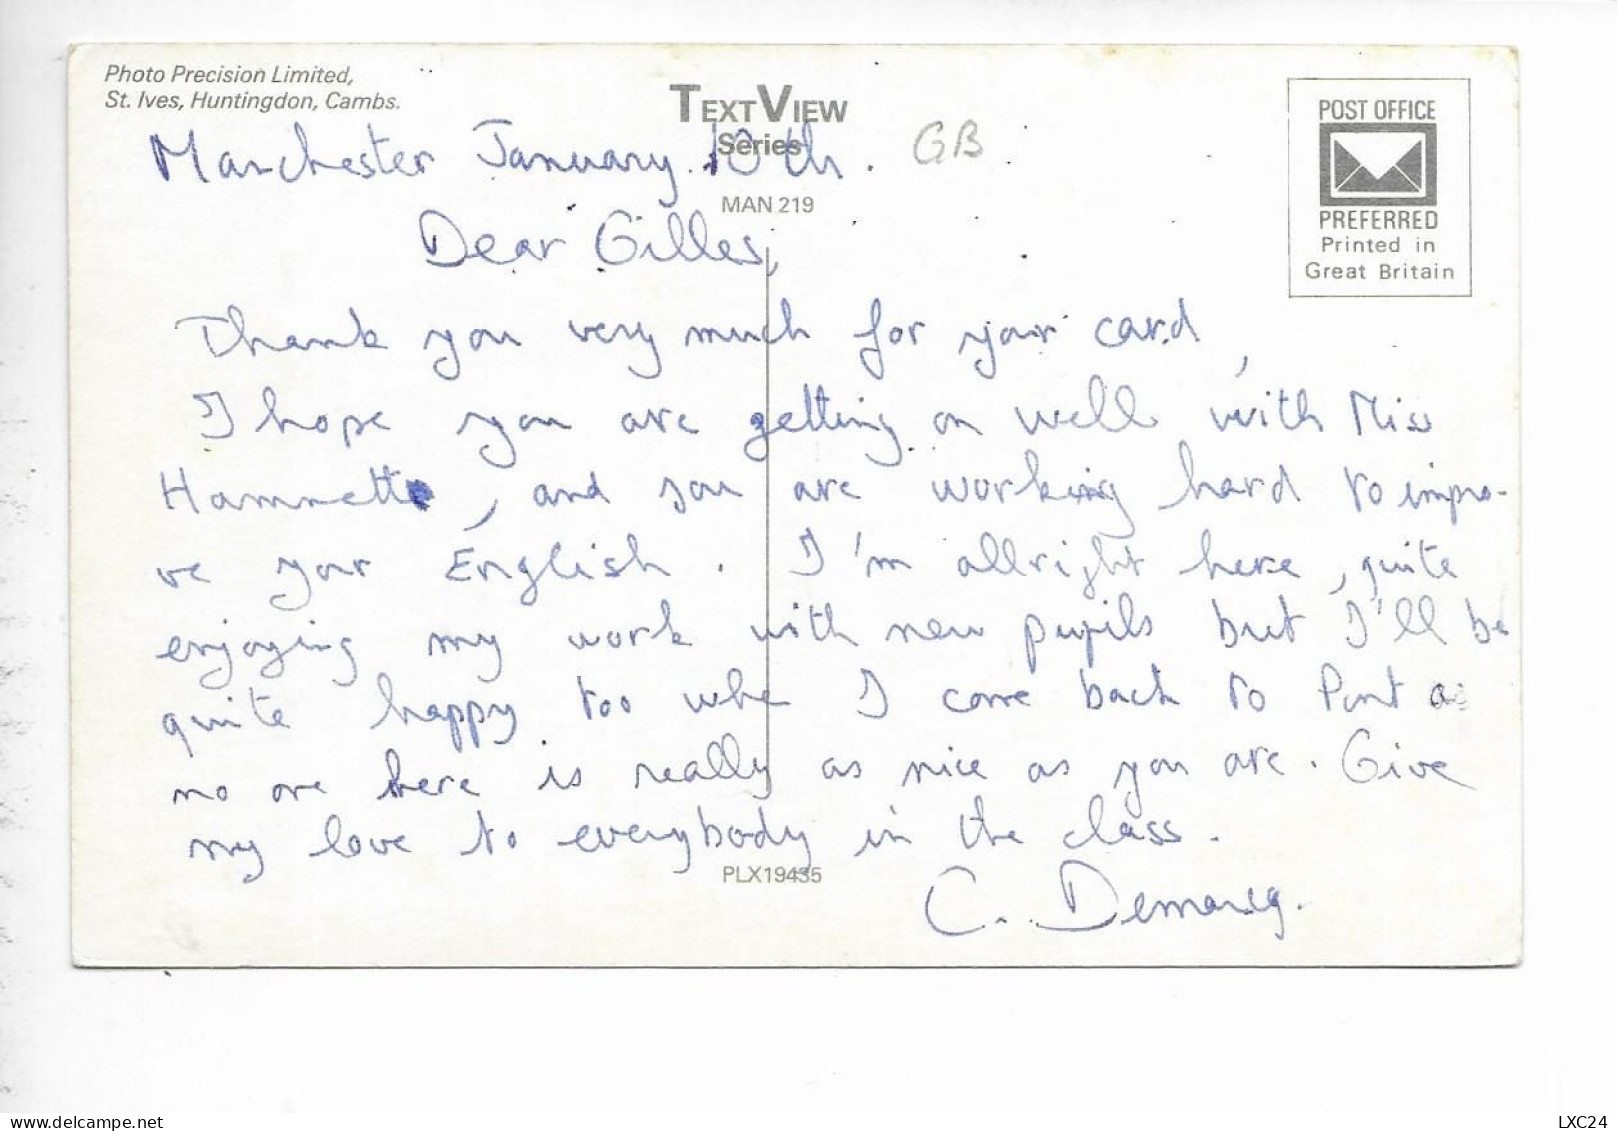 Photo Precision Limited,
St. Ives, Huntingdon, Cambs.
TEXTVIEW
Series
MAN 219
POST OFFICE
PREFERRED
Printed in
Great Britain
GB
Manchester January 10th.
Dear Gilles,
Thank you very much for your card,
I hope you are getting on well with Miss
Hamnett, and you are working hard to impro-
ve your English. I'm allright here, quite
enjoying my work with new pupils but I'll be
quite happy too whe I come back to Pont as
no one here is really as nice as you are. Give
my love to everybody in the class.
PLX19435
C. Demarcq.
delcampe.net
LXC24